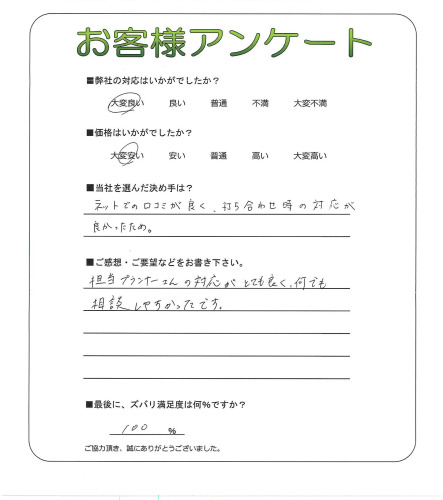 お客様アンケート
■弊社の対応はいかがでしたか？
大変良い 良い 普通 不満 大変不満
■価格はいかがでしたか？
大変安い 安い 普通 高い 大変高い
■当社を選んだ決め手は？
ネットでの口コミが良く、打ち合わせ時の対応が
良かったため。
■ご感想・ご要望などをお書き下さい。
担当プランナーさんの対応がとても良く、何でも
相談しやすかったです。
■最後に、ズバリ満足度は何%ですか？
100 %
ご協力頂き、誠にありがとうございました。